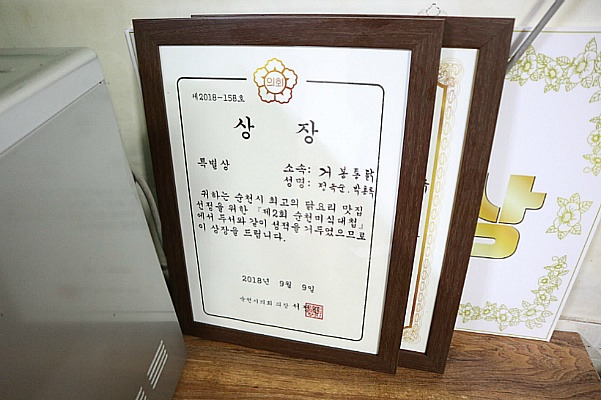 의회
제2018-158호
상 장
특별상 소속: 거봉통닭
성명: 정옥순, 박홍
귀하는 순천시 최고의 닭요리 맛집
선정을 위한 「제2회 순천미식대첩」
에서 두서와 같이 성적을 거두었으므로
이 상장을 드립니다.
2018년 9월 9일
순천시의회 의장 서
상